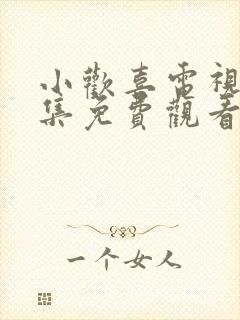 小歡喜電視
集免費觀看
一个女人